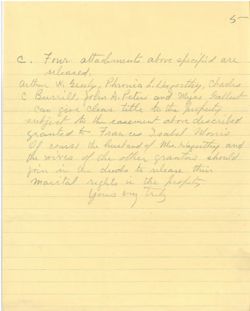 5-
C. Four attachments above specified are
released,
Arthur W. Gealy, L. Hagerthy, Charles
C Burrill, John A. Peters and Myer Gallert
can give clear title to the property
subject to the easement above described
granted to Frances Isabel Morris
Of course the husband of Mrs. Hagerthy and
the wives of the other grantors should
join in the deeds to release their
marital rights in the property
Yours very Truly